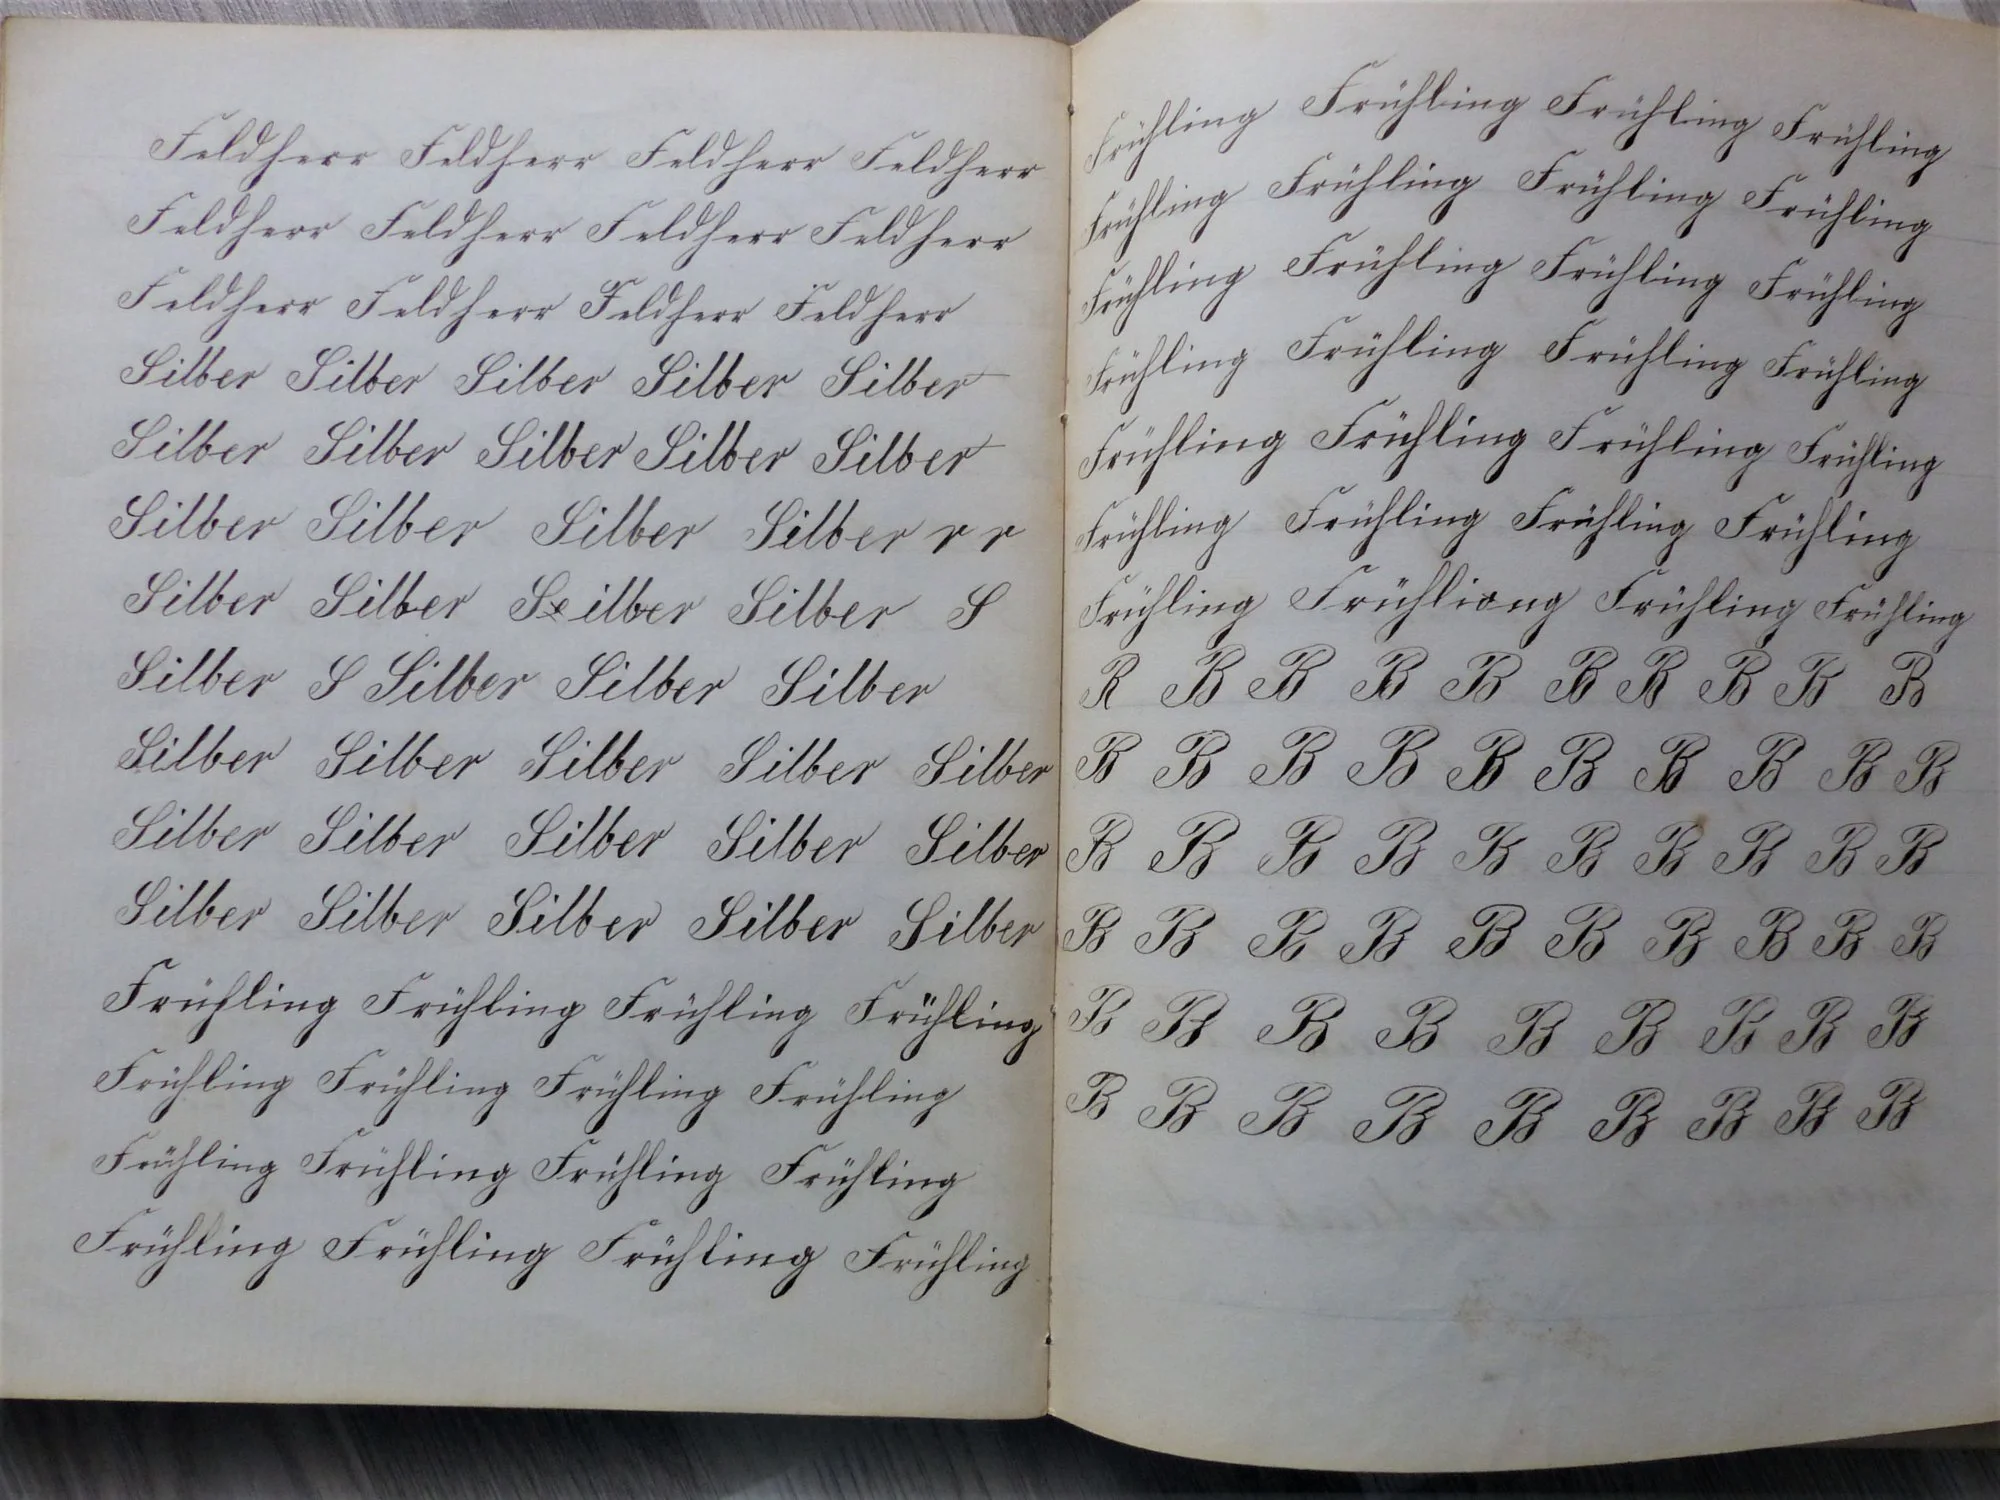 Feldherr Feldherr Feldherr Feldherr
Feldherr Feldherr Feldherr Feldherr
Feldherr Feldherr Feldherr Feldherr
Silber Silber Silber Silber Silber
Silber Silber Silber Silber Silber
Silber Silber Silber Silber r r
Silber Silber Seilber Silber S
Silber S Silber Silber Silber
Silber Silber Silber Silber Silber
Silber Silber Silber Silber Silber
Silber Silber Silber Silber Silber
Frühling Frühling Frühling Frühling
Frühling Frühling Frühling Frühling
Frühling Frühling Frühling Frühling
Frühling Frühling Frühling Frühling
Frühling Frühling Frühling Frühling
Frühling Frühling Frühling Frühling
Frühling Frühling Frühling Frühling
Frühling Frühling Frühling Frühling
Frühling Frühling Frühling Frühling
Frühling Frühling Frühling Frühling
Frühling Frühliong Frühling Frühling
R B B B B B R B B B
B B B B B B B B B B
B B B B B B B B B B
B B B B B B B B B B
B B B B B B B B B
B B B B B B B B B